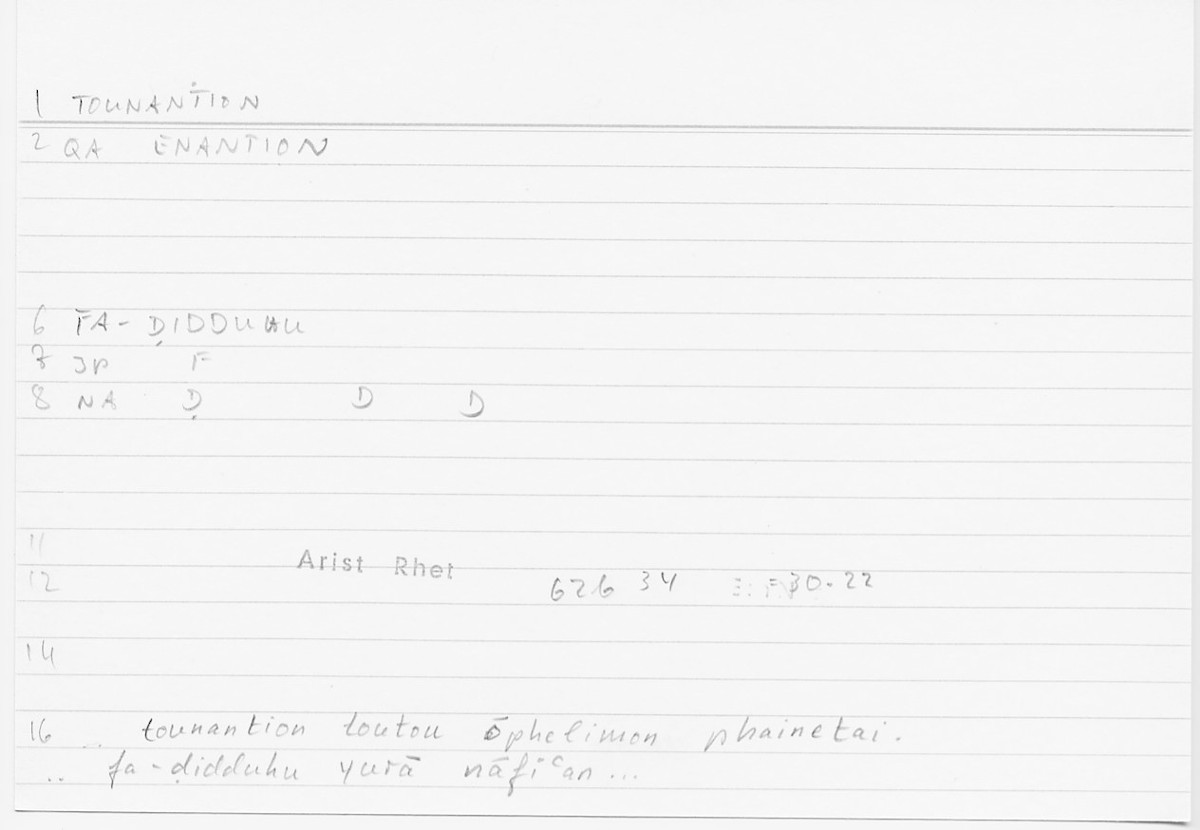 1 TOUNANTION
2 QA ENANTION
6 FA-ḌIDDUHU
7 JP F
8 NA Ḍ D D
11
Arist Rhet
12 626 34 30.22
14
16 .. tounantion toutou ōphelimon phainetai.
.. fa-ḍidduhu yurā nāfiᶜan...